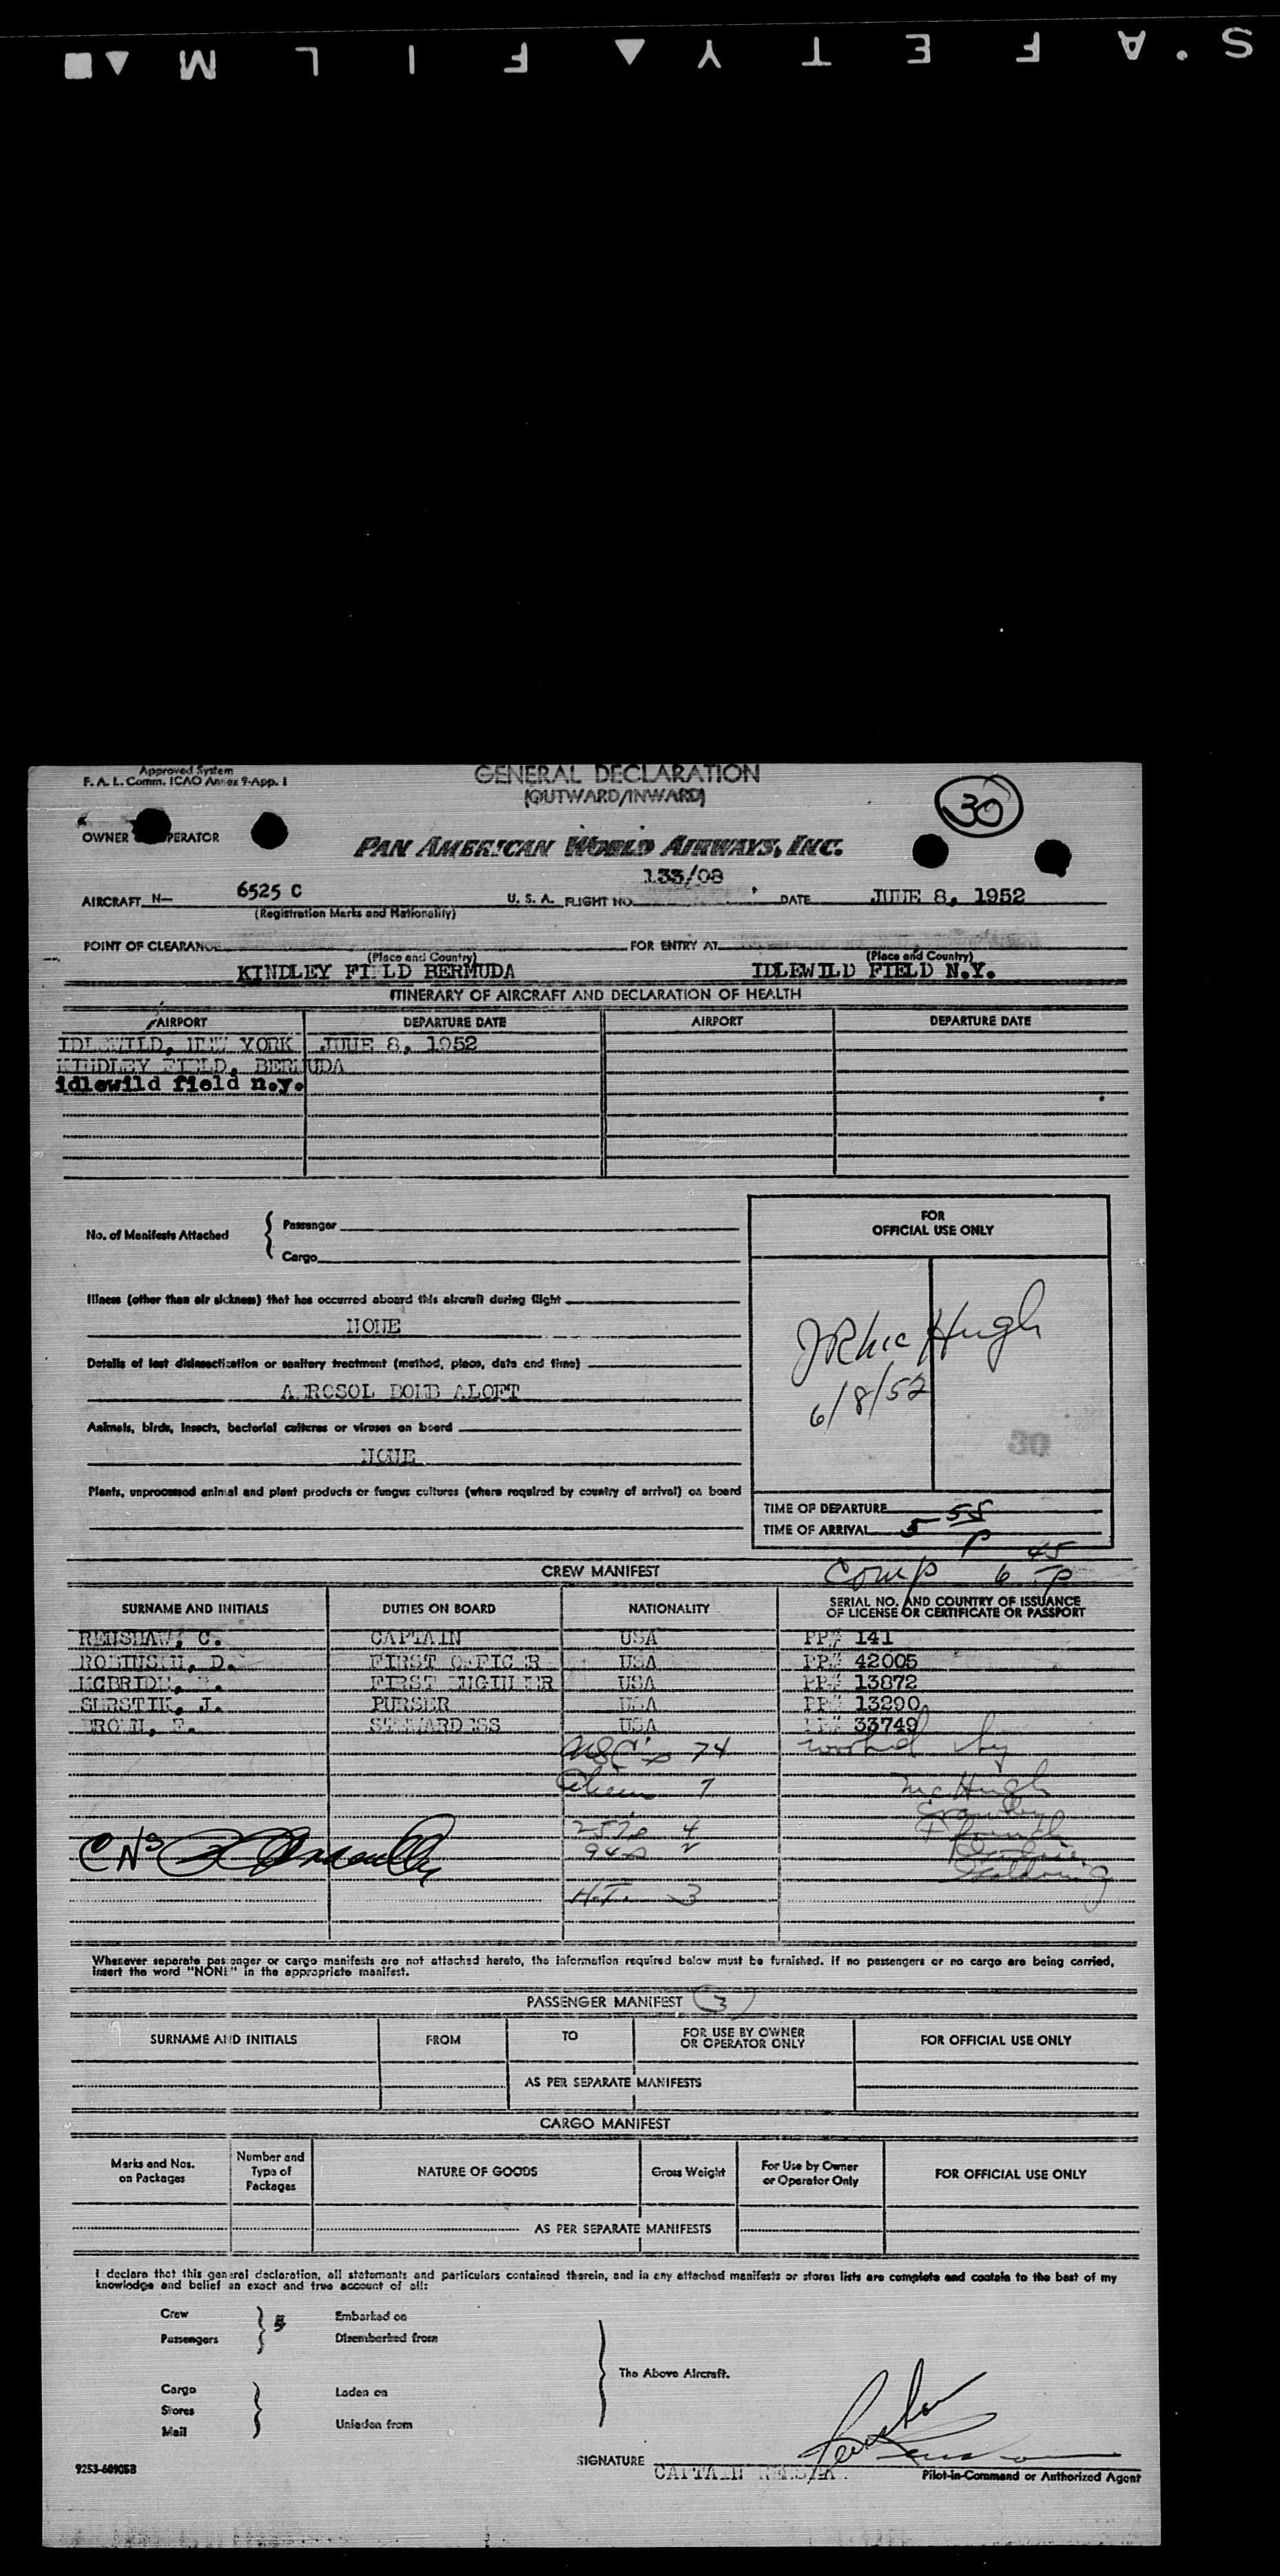 S.AFETY▲FILM▲■
Approved System
F. A. L. Comm. ICAO Annex 9-App. 1
GENERAL DECLARATION
(OUTWARD/INWARD)
30
OWNER OPERATOR
PAN AMERICAN WORLD AIRWAYS, INC.
133/08
AIRCRAFT N— 6525 C U. S. A. FLIGHT NO. DATE JUNE 8, 1952
(Registration Marks and Nationality)
POINT OF CLEARANCE FOR ENTRY AT
(Place and Country) (Place and Country)
KINDLEY FI LD BERMUDA IDLEWILD FIELD N.Y.
ITINERARY OF AIRCRAFT AND DECLARATION OF HEALTH
AIRPORT DEPARTURE DATE AIRPORT DEPARTURE DATE
IDLEWILD, NEW YORK JUNE 8, 1952
KINDLEY FIELD, BERMUDA
idlewild field n.y.
No. of Manifests Attached { Passenger
Cargo
FOR
OFFICIAL USE ONLY
Illness (other than air sickness) that has occurred aboard this aircraft during flight
NONE
Details of last disinsectization or sanitary treatment (method, place, date and time)
A ROSOL BOMB ALOFT
Animals, birds, insects, bacterial cultures or viruses on board
NONE
Plants, unprocessed animal and plant products or fungus cultures (where required by country of arrival) on board
JR McHugh
6/8/52
30
TIME OF DEPARTURE
TIME OF ARRIVAL 5 55 P
CREW MANIFEST Comp 6 45 P
SURNAME AND INITIALS DUTIES ON BOARD NATIONALITY SERIAL NO. AND COUNTRY OF ISSUANCE
OF LICENSE OR CERTIFICATE OR PASSPORT
RENSHAW, C. CAPTAIN USA PP# 141
ROBINSON, D. FIRST OFFIC R USA PP# 42005
MCBRIDE, FIRST ENGINEER USA PP# 13872
SERSTIK, J. PURSER USA PP# 13290
BROWN, E. STEWARDESS USA PP# 33749
USC's 74 worked by
Alien 7 McHugh
257a 4
94 2
H.T. 3
Whenever separate passenger or cargo manifests are not attached hereto, the information required below must be furnished. If no passengers or no cargo are being carried,
insert the word "NONE" in the appropriate manifest.
PASSENGER MANIFEST 3
SURNAME AND INITIALS FROM TO FOR USE BY OWNER
OR OPERATOR ONLY FOR OFFICIAL USE ONLY
AS PER SEPARATE MANIFESTS
CARGO MANIFEST
Marks and Nos.
on Packages Number and
Type of
Packages NATURE OF GOODS Gross Weight For Use by Owner
or Operator Only FOR OFFICIAL USE ONLY
AS PER SEPARATE MANIFESTS
I declare that this general declaration, all statements and particulars contained therein, and in any attached manifests or stores lists are complete and contain to the best of my
knowledge and belief an exact and true account of all:
Crew } 5 Embarked on
Passengers Disembarked from
The Above Aircraft.
Cargo Laden on
Stores
Mail Unladen from
SIGNATURE CAPTAIN RENSHAW
Pilot-in-Command or Authorized Agent
9253-601053